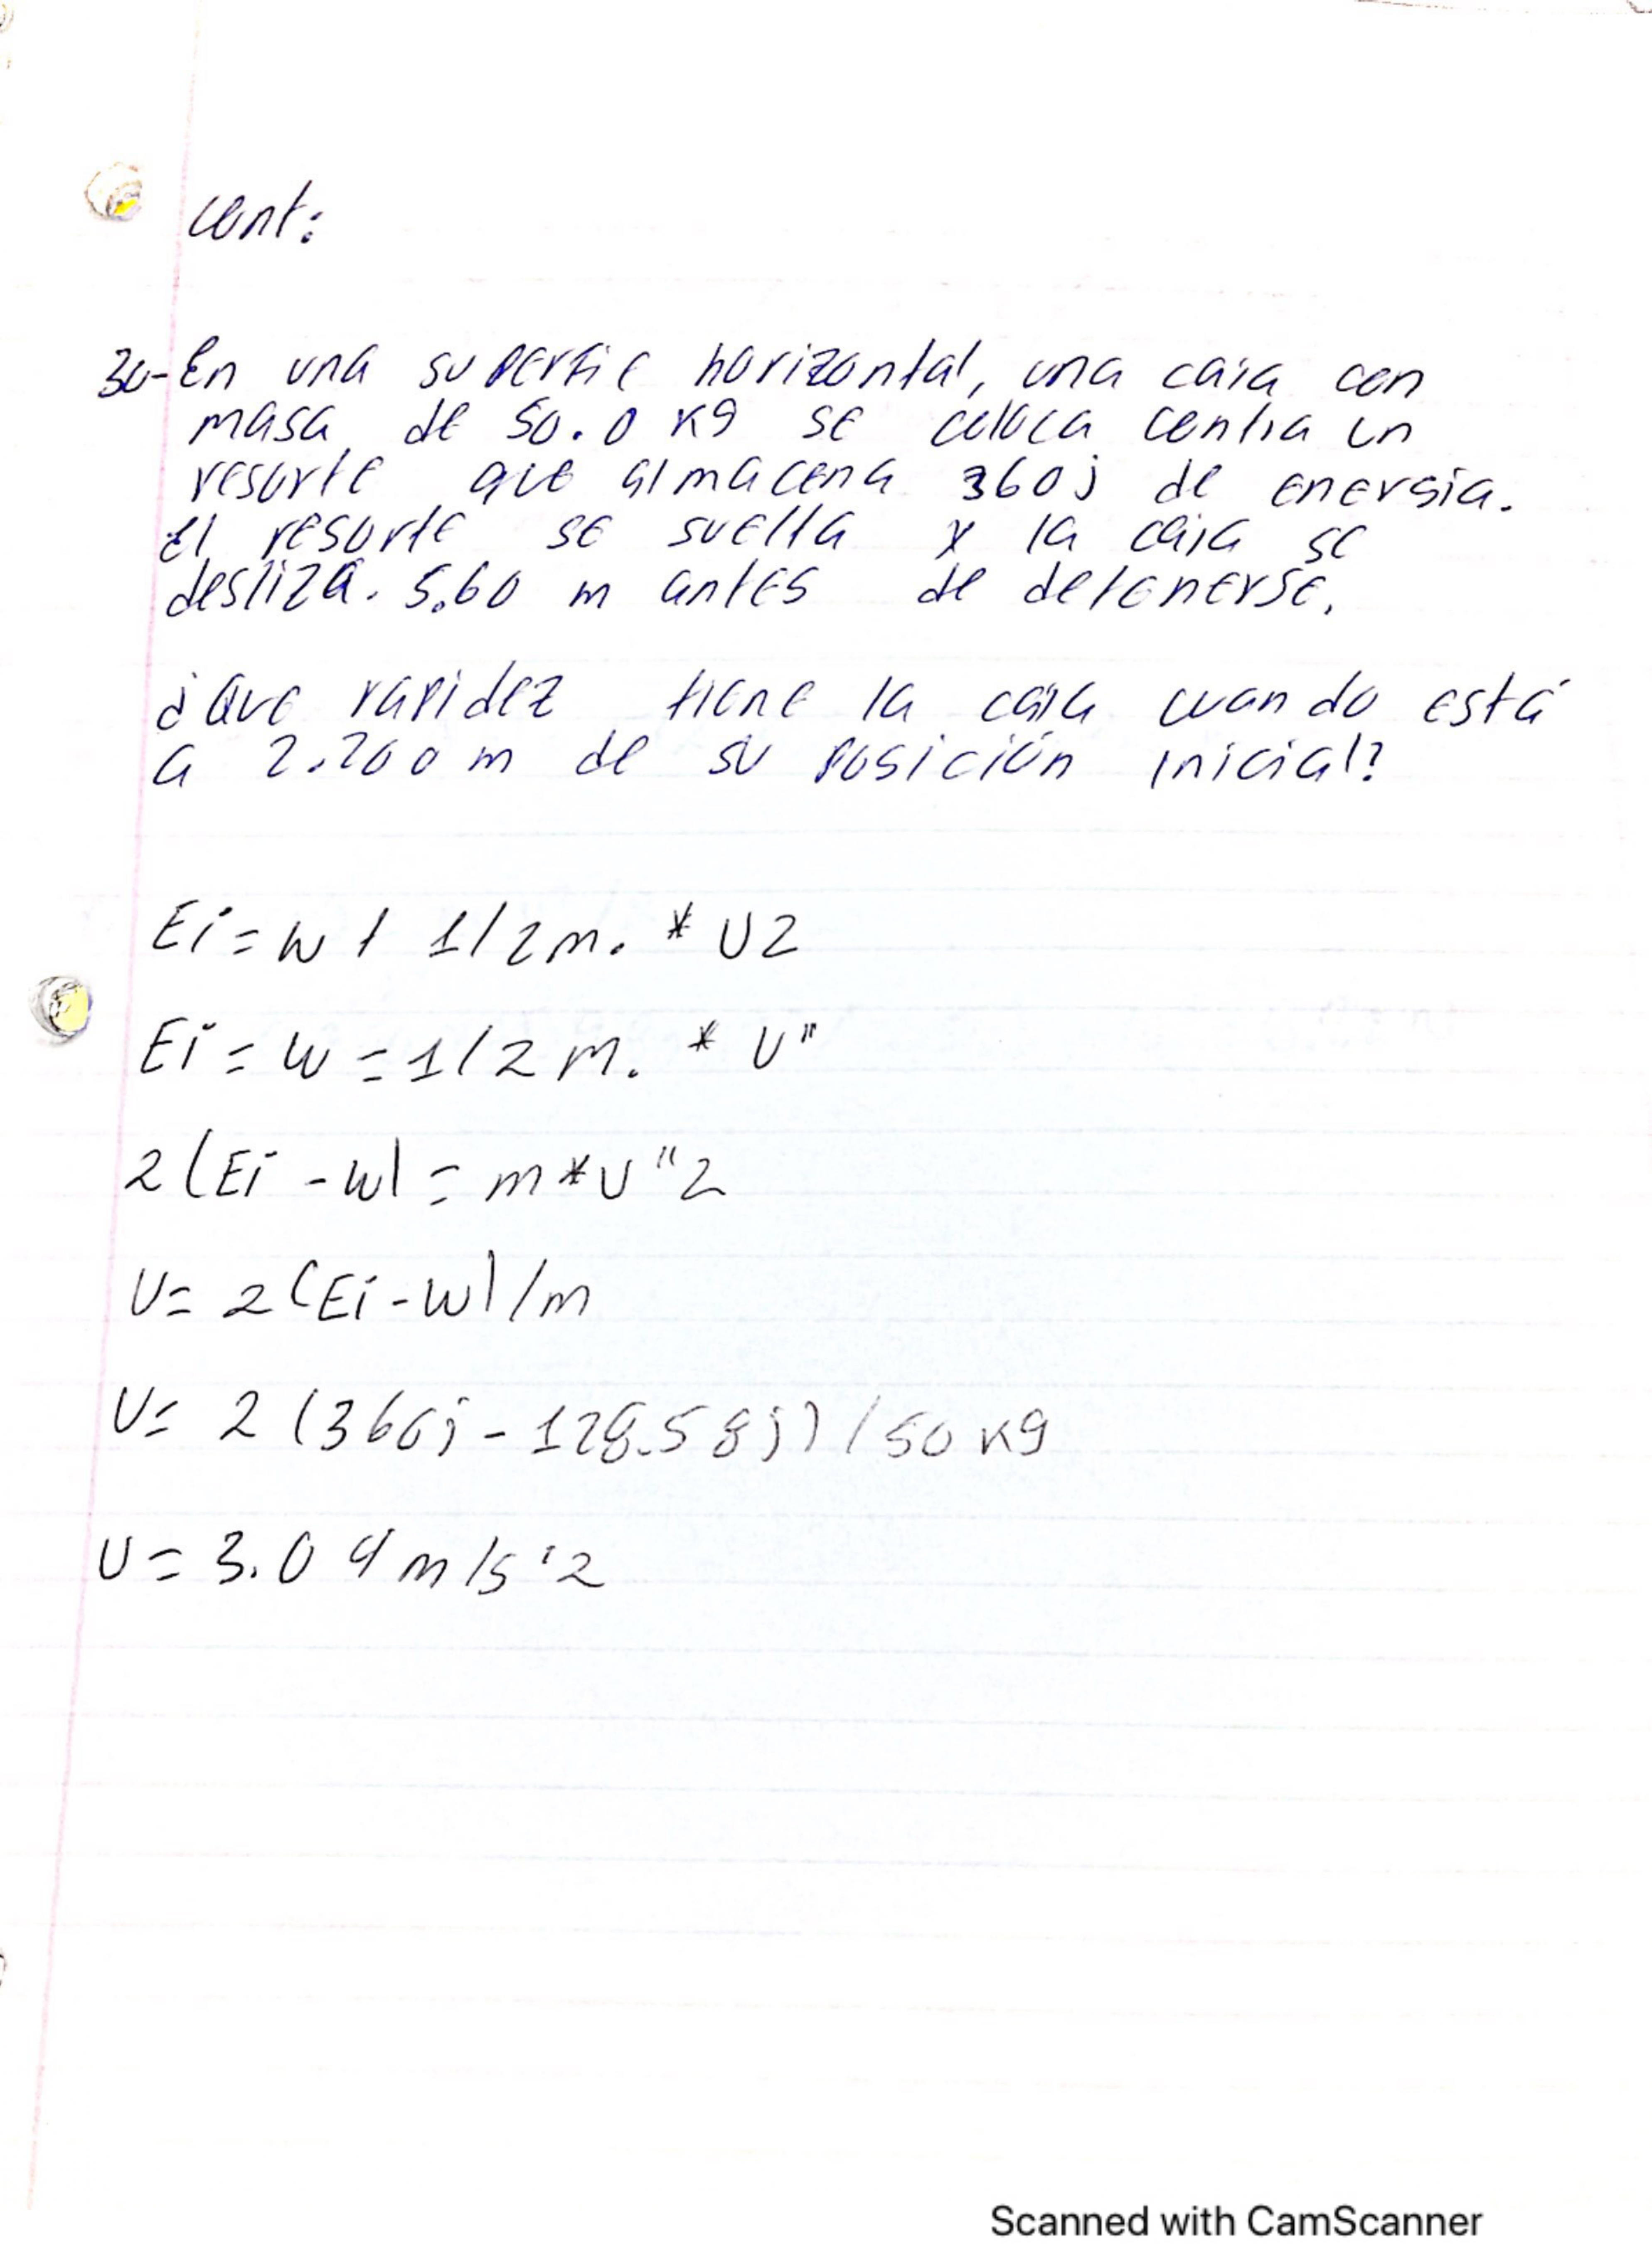 cont:
30-En una superfie horizontal, una caja con
masa de 50.0 Kg se coloca contra un
resorte que almacena 360j de energia.
El resorte se suelta y la caja se
desliza. 5.60 m antes de detenerse.
¿Que rapidez tiene la caja cuando está
a 2.200m de su posición inicial?
Ei = w + 1/2m. * U2
Ei = w = 1/2 m. * U"
2 (Ei - w) = m * U "2
U = 2 (Ei - w) / m
U = 2 (360j - 128.58j) / 50 Kg
U = 3.04 m/s '2
Scanned with CamScanner